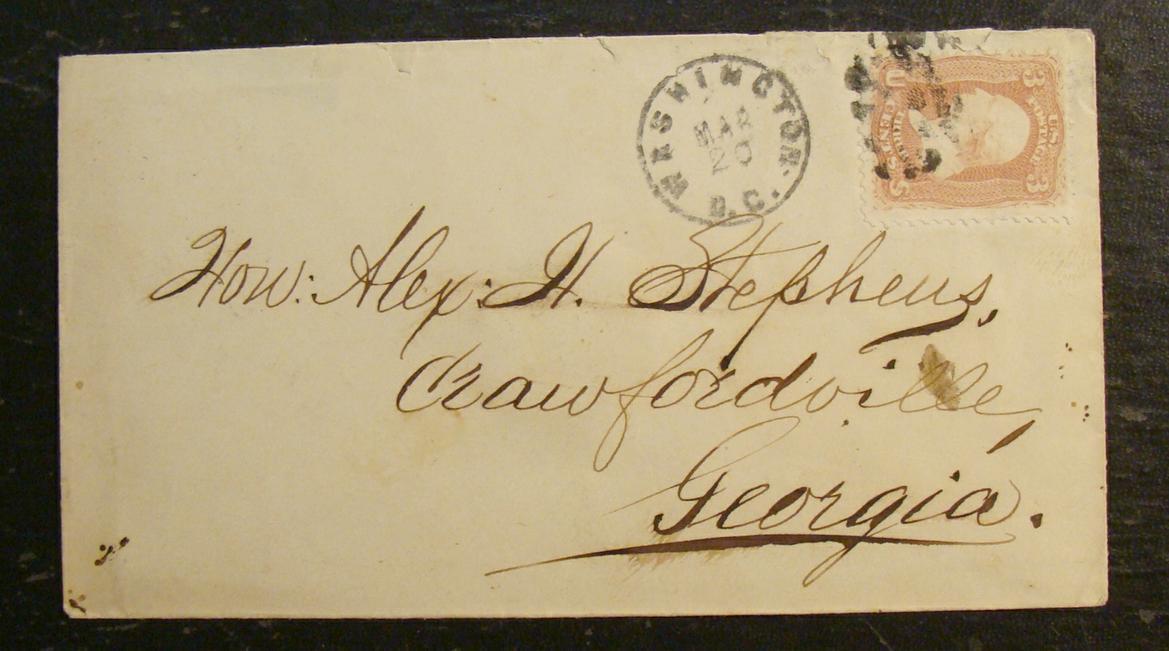 WASHINGTON. D.C.
MAR
20
U 3
U.S. POSTAGE
THREE CENTS
S 3
Hon: Alex: H. Stephens,
Crawfordville,
Georgia.